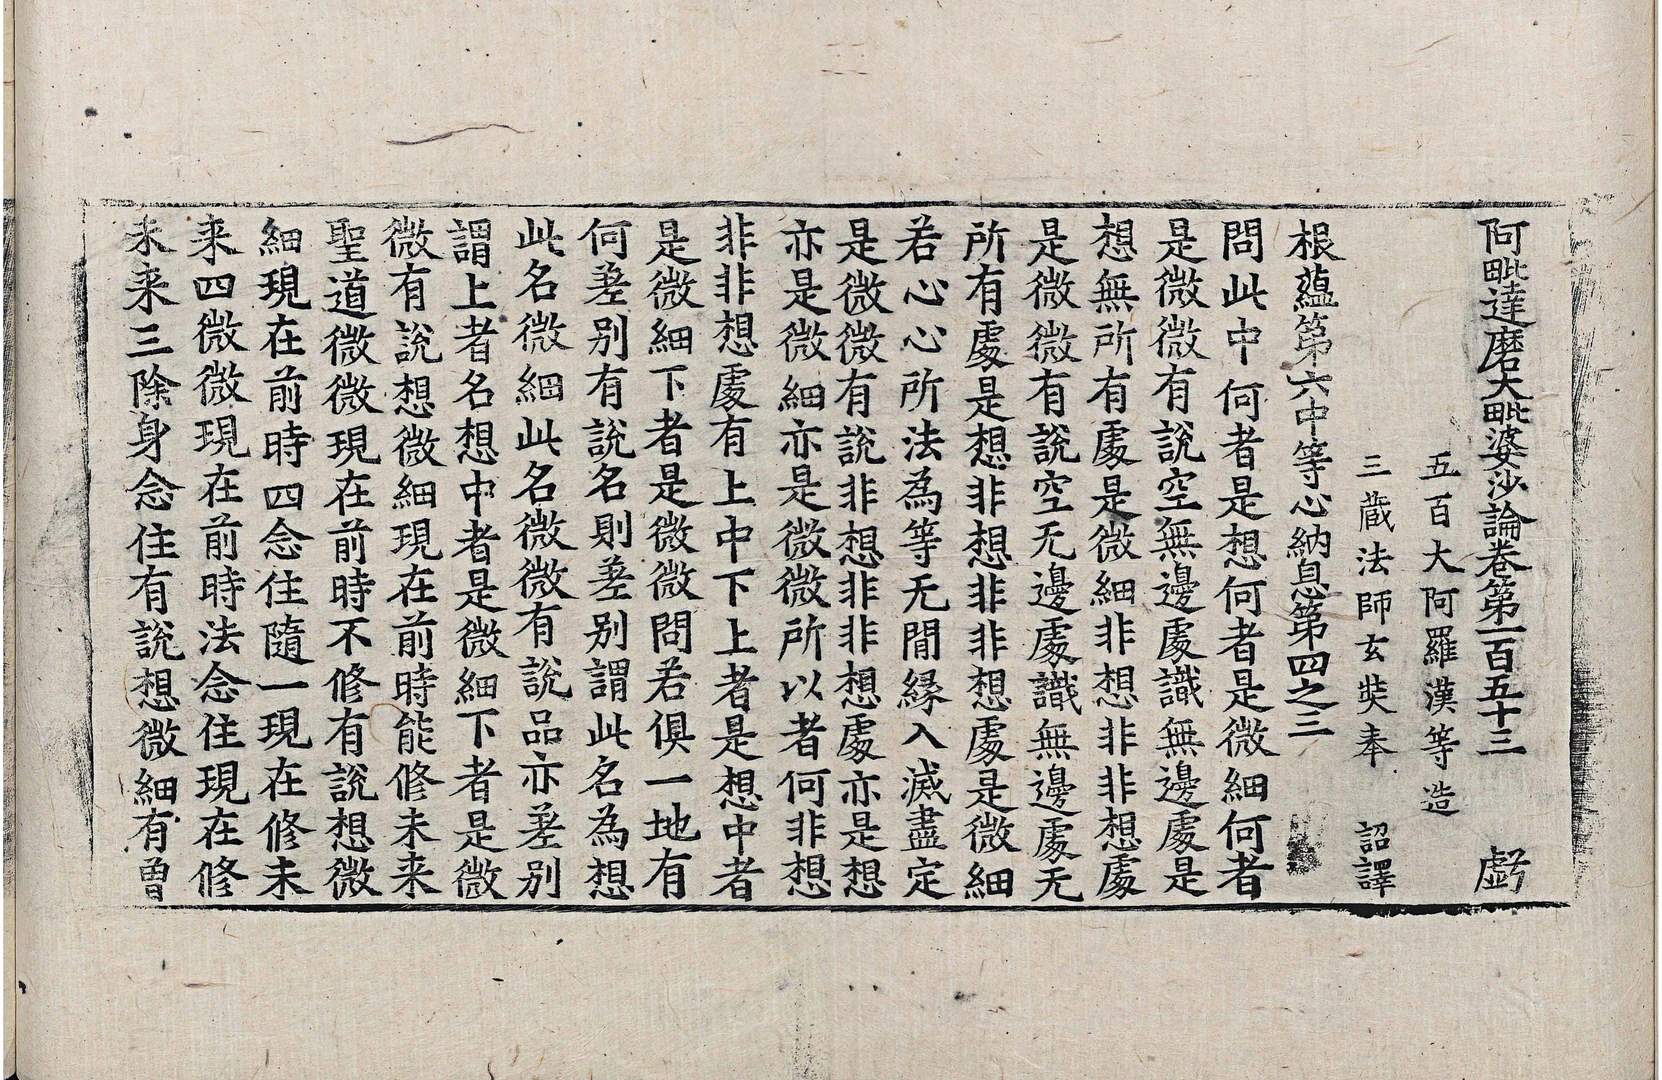 阿毗達磨大毗婆沙論卷第一百五十三 虧
五百大阿羅漢等造
三藏法師玄奘奉 詔譯
根蘊第六中等心納息第四之三
問此中何者是想何者是微細何者
是微微有說空無邊處識無邊處是
想無所有處是微細非想非非想處
是微微有說空无邊處識無邊處无
所有處是想非想非非想處是微細
若心心所法為等无間緣入滅盡定
是微微有說非想非非想處亦是想
亦是微細亦是微微所以者何非想
非非想處有上中下上者是想中者
是微細下者是微微問若俱一地有
何差別有說名則差別謂此名為想
此名微細此名微微有說品亦差別
謂上者名想中者是微細下者是微
微有說想微細現在前時能修未来
聖道微微現在前時不修有說想微
細現在前時四念住隨一現在修未
来四微微現在前時法念住現在修
未来三除身念住有說想微細有曽